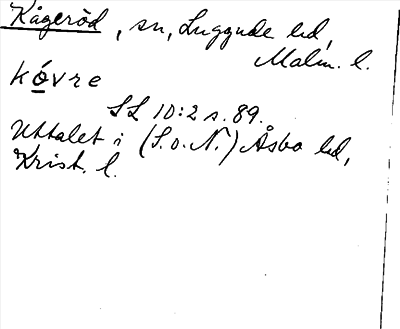 Kågeröd, sn, Luggude hd,
Malm. l.
kóvre
SL 10:2 s. 89.
Uttalet i (S. o. N.) Åsbo hd,
Krist. l.